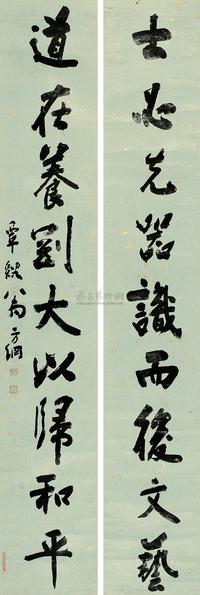 士必先器識而後文藝
道在養剛大以歸和平
覃谿八十翁方綱